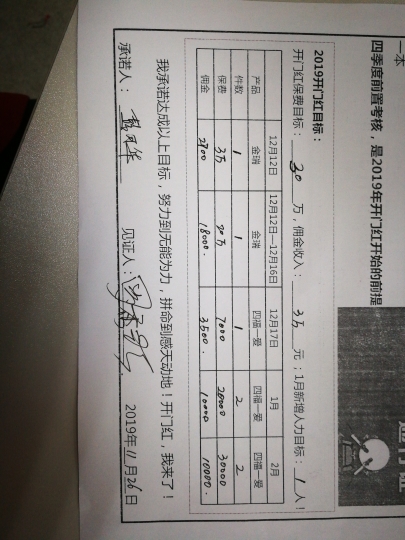 一本
四季度前置考核，是2019年开门红开始的前提
2019开门红目标：
开门红保费目标：30万，佣金收入：3万元；1月新增人力目标：1人！
12月12日 12月12日—12月16日 12月17日 1月 2月
产品 金瑞 金瑞 四福一爱 四福一爱 四福一爱
件数 1 1 1 2 2
保费 3万 20万 7000 20000 30000
佣金 2700 18000. 3500. 10000 10000.
我承诺达成以上目标，努力到无能为力，拼命到感天动地！开门红，我来了！
承诺人： 见证人： 2019年11月26日